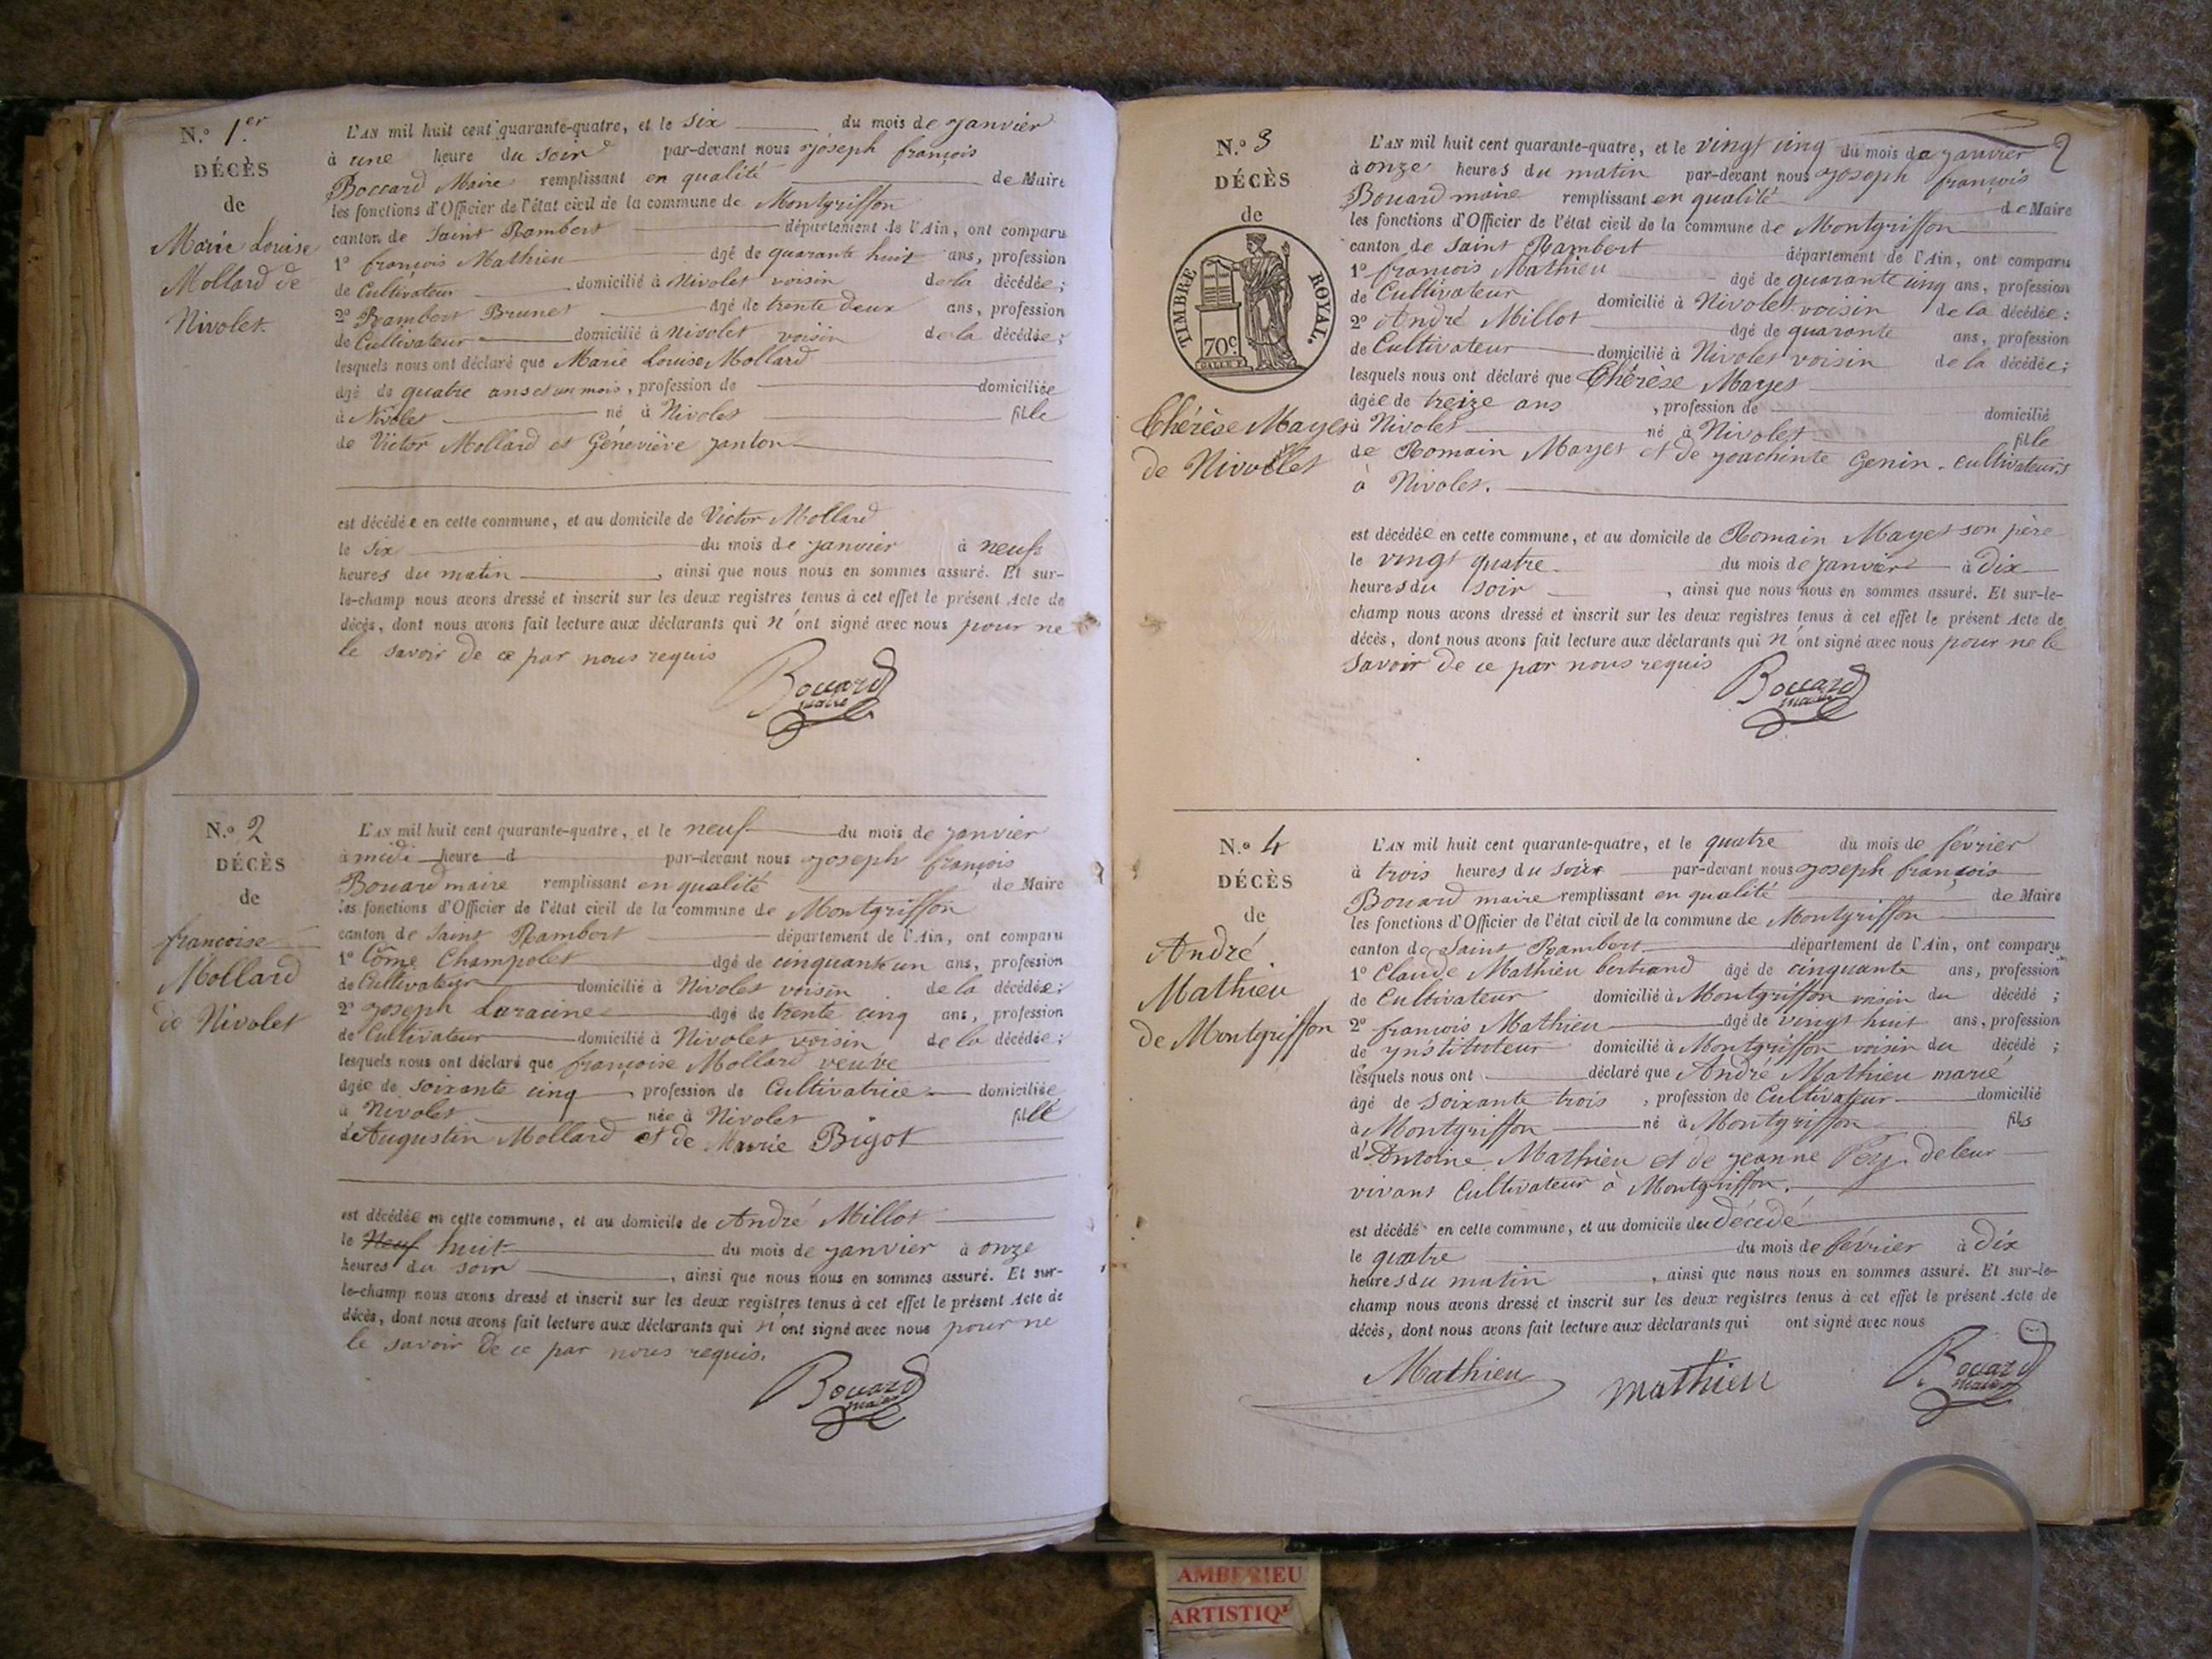 N.o 1.er
DÉCÈS
de
Marie Louise
Mollard de
Nivolet.
L'AN mil huit cent quarante-quatre, et le six du mois de janvier
à une heure du soir par-devant nous joseph françois
Boccard Maire remplissant en qualité de Maire
les fonctions d'Officier de l'état civil de la commune de Montgriffon
canton de Saint Rambert département de l'Ain, ont comparu
1º françois Mathieu âgé de quarante huit ans, profession
de Cultivateur domicilié à Nivolet voisin de la décédée;
2º Rambert Brunet âgé de trente deux ans, profession
de Cultivateur domicilié à Nivolet voisin de la décédée;
lesquels nous ont déclaré que Marie Louise Mollard
âgé de quatre ans et un mois, profession de domiciliée
à Nivolet né à Nivolet fille
de Victor Mollard et Géneviève janton
est décédée en cette commune, et au domicile de Victor Mollard
le six du mois de janvier à neuf
heures du matin, ainsi que nous nous en sommes assuré. Et sur-
le-champ nous avons dressé et inscrit sur les deux registres tenus à cet effet le présent Acte de
décès, dont nous avons fait lecture aux déclarants qui n'ont signé avec nous pour ne
le savoir de ce par nous requis
Bouard
maire
N.o 2
DÉCÈS
de
françoise
Mollard
de Nivolet
L'AN mil huit cent quarante-quatre, et le neuf du mois de janvier
à midi heure d par-devant nous joseph françois
Bouard maire remplissant en qualité de Maire
les fonctions d'Officier de l'état civil de la commune de Montgriffon
canton de Saint Rambert département de l'Ain, ont comparu
1º Côme Champolet âgé de cinquante un ans, profession
de Cultivateur domicilié à Nivolet voisin de la décédée;
2º joseph Laracine âgé de trente cinq ans, profession
de Cultivateur domicilié à Nivolet voisin de la décédée;
lesquels nous ont déclaré que françoise Mollard veuve
âgée de soixante cinq, profession de Cultivatrice domiciliée
à Nivolet née à Nivolet fille
de Augustin Mollard et de Marie Bigot
est décédée en cette commune, et au domicile de André Millot
le Neuf huit du mois de janvier à onze
heures du soir, ainsi que nous nous en sommes assuré. Et sur-
le-champ nous avons dressé et inscrit sur les deux registres tenus à cet effet le présent Acte de
décès, dont nous avons fait lecture aux déclarants qui n'ont signé avec nous pour ne
le savoir de ce par nous requis.
Bouard
maire
2
N.o 3
DÉCÈS
de
TIMBRE ROYAL.
70c.
Thérèse Mayet
de Nivollet
L'AN mil huit cent quarante-quatre, et le vingt cinq du mois de janvier
à onze heures du matin par-devant nous joseph françois
Bouard maire remplissant en qualité de Maire
les fonctions d'Officier de l'état civil de la commune de Montgriffon
canton de Saint Rambert département de l'Ain, ont comparu
1º françois Mathieu âgé de quarante cinq ans, profession
de Cultivateur domicilié à Nivolet voisin de la décédée;
2º André Millot âgé de quarante ans, profession
de Cultivateur domicilié à Nivolet voisin de la décédée;
lesquels nous ont déclaré que Thérèse Mayet
âgée de treize ans, profession de domicilié
à Nivolet né à Nivolet fille
de Romain Mayet et de joachinte Genin. cultivateurs
à Nivolet.
est décédée en cette commune, et au domicile de Romain Mayet son père
le vingt quatre du mois de janvier à dix
heures du soir, ainsi que nous nous en sommes assuré. Et sur-le-
champ nous avons dressé et inscrit sur les deux registres tenus à cet effet le présent Acte de
décès, dont nous avons fait lecture aux déclarants qui n'ont signé avec nous pour ne le
savoir de ce par nous requis
Bouard
maire
N.o 4
DÉCÈS
de
André
Mathieu
de Montgriffon
L'AN mil huit cent quarante-quatre, et le quatre du mois de février
à trois heures du soir par-devant nous joseph françois
Bouard maire remplissant en qualité de Maire
les fonctions d'Officier de l'état civil de la commune de Montgriffon
canton de Saint Rambert département de l'Ain, ont comparu
1º Claude Mathieu bertrand âgé de cinquante ans, profession
de Cultivateur domicilié à Montgriffon voisin du décédé;
2º françois Mathieu âgé de vingt huit ans, profession
de ynstituteur domicilié à Montgriffon voisin du décédé;
lesquels nous ont déclaré que André Mathieu marié
âgé de soixante trois, profession de Cultivateur domicilié
à Montgriffon né à Montgriffon fils
d'Antoine Mathieu et de jeanne Pey. de leur
vivant Cultivateur à Montgriffon.
est décédé en cette commune, et au domicile du décédé
le quatre du mois de février à dix
heures du matin, ainsi que nous nous en sommes assuré. Et sur-le-
champ nous avons dressé et inscrit sur les deux registres tenus à cet effet le présent Acte de
décès, dont nous avons fait lecture aux déclarants qui ont signé avec nous
Mathieu mathieu Bouard
maire
AMBERIEU
ARTISTIQ